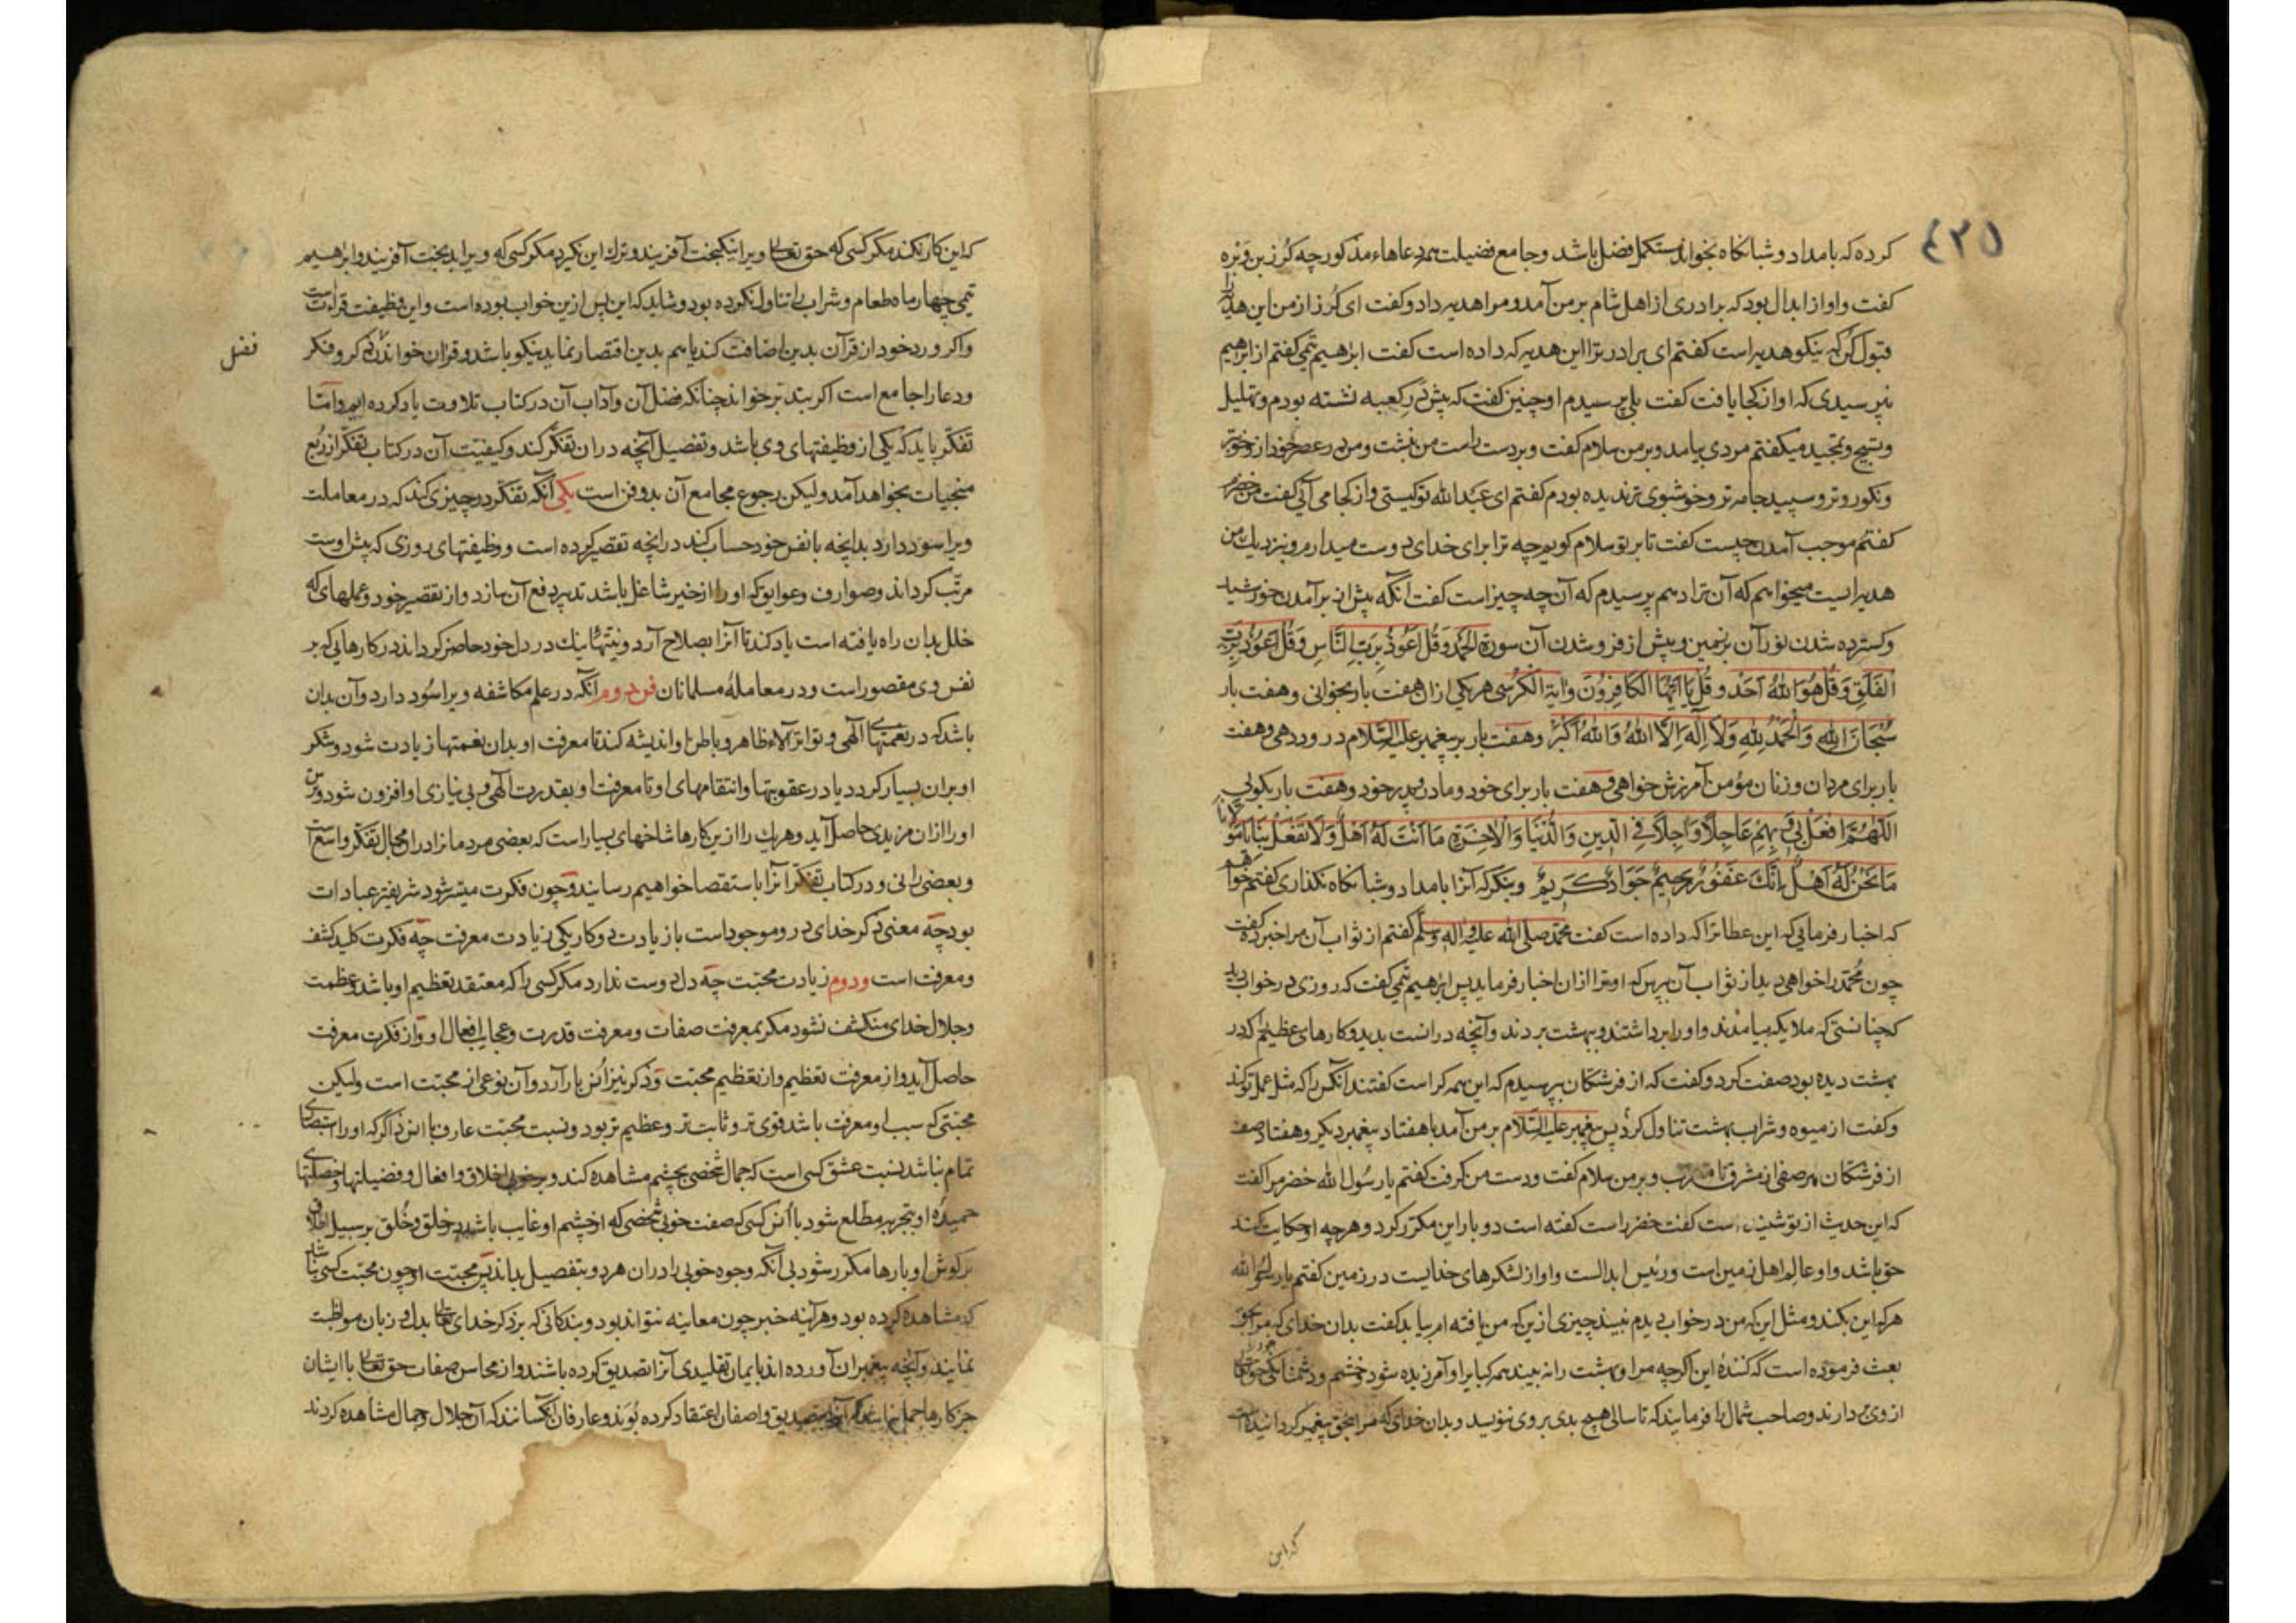 ٤٣٥
کرده که بامداد و شبانگاه بخواند مستکمل فضل باشد و جامع فضیلت همه دعاهاء مذکور چه کرز بن وبره
گفت و او از ابدال بود که برادری از اهل شام بر من آمد و مرا هدیه داد و گفت ای کرز از من این هدیه را
قبول کن که نیکو هدیه است گفتم ای برادر ترا این هدیه که داده است گفت ابرهیم تیمی گفتم از ابرهیم
نپرسیدی که او از کجا یافت گفت بلی پرسیدم او چنین گفت که پیش در کعبه نشسته بودم و تهلیل
و تسبیح و تمجید میگفتم مردی بیامد و بر من سلام گفت و بر دست راست من بنشست و من در عصر خود از و خوبتر
و نکوروتر و سپید جامه تر و خوشبوی تر ندیده بودم گفتم ای عبد الله تو کیستی و از کجا می آئی گفت من خضرم
گفتم موجب آمدن چیست گفت تا بر تو سلام گویم چه ترا برای خدای دوست میدارم و نزدیک من
هدیه ایست میخواهم که آن ترا دهم پرسیدم که آن چه چیز است گفت انکه پیش از بر آمدن خورشید
و گسترده شدن نور آن بر زمین و پیش از فرو شدن آن سورة الحمد و قل اعوذ برب الناس و قل اعوذ برب
الفلق و قل هو الله احد و قل یا ایها الکافرون و ایة الکرسی هر یکی ازان هفت بار بخوانی و هفت بار
سبحان الله و الحمد لله و لا اله الا الله و الله اکبر و هفت بار بر پیغمبر علیه السلام درود دهی و هفت
بار برای مردان و زنان مؤمن آمرزش خواهی و هفت بار برای خود و مادر و پدر خود و هفت بار بگوئی
اللهم افعل بی و بهم عاجلا و اجلا فی الدین و الدنیا و الاخرة ما انت له اهل و لا تفعل بنا یا مولانا
ما نحن له اهل انک غفور رحیم جواد کریم و بنکر که آنرا بامداد و شبانگاه نگذاری گفتم خواهم
که اخبار فرمایی که این عطا ترا که داده است گفت محمد صلی الله علیه و اله و سلم گفتم از ثواب آن مرا خبر ده گفت
چون محمد را خواهی دید از ثواب آن بپرس که او ترا ازان اخبار فرماید پس ابرهیم تیمی گفت که روزی در خواب دید
کچنانستی که ملایکه بیامدند و او را برداشتند و ببهشت بردند و آنچه درانست بدید و کارهای عظیم که در
بهشت دیده بود صفت کرد و گفت که از فرشتگان بپرسیدم که این همه کراست گفتند آنکس را که مثل عمل تو کند
و گفت از میوه و شراب بهشت تناول کرد پس پیغمبر علیه السلام بر من آمد با هفتاد پیغمبر دیگر و هفتاد صف
از فرشتگان هر صفی از مشرق تا مغرب و بر من سلام گفت و دست من گرفت گفتم یا رسول الله خضر مرا گفت
که این حدیث از تو شنیده است گفت خضر راست گفته است دو بار این مکرر کرد و هر چه او حکایت کند
حق باشد و او عالم اهل زمین است و رئیس ابدالست و او از لشکرهای خدایست در زمین گفتم یا رسول الله
هر که این بکند و مثل این که من در خواب دیدم نبیند چیزی ازین که من یافته ام بیابد گفت بدان خدای که مرا بحق
بعث فرموده است که کنندهٔ این اگرچه مرا و بهشت را نه بیند همه کبایر او آمرزیده شود و خشم و دشمنانگی حق تعالی
از وی بردارند و صاحب شمال را فرمایند که تا سالی هیچ بدی بر وی ننویسد و بدان خدای که مرا بحق پیغمبر گردانیده است
که این
که این کار نکند مگر کسی که حق تعالی ویرا نیکبخت آفریند و ترک این نگیرد مگر کسی که ویرا بدبخت آفریند و ابرهیم
تیمی چهار ماه طعام و شراب را تناول نکرده بود و شاید که این پس ازین خواب بوده است و این وظیفت قراءت است
و اگر ورد خود از قرآن بدین اضافت کند یا هم بدین اقتصار نماید نیکو باشد و قران خواندن ذکر و فکر
و دعا را جامع است اگر بتدبر خواند چنانکه فضل آن و آداب آن در کتاب تلاوت یاد کرده ایم و امّا
تفکر باید که یکی از وظیفتهای وی باشد و تفصیل آنچه دران تفکر کند و کیفیت آن در کتاب تفکر از ربع
منجیات بخواهد آمد و لیکن رجوع مجامع آن بدو فن است یکی آنکه تفکر در چیزی کند که در معاملت
ویرا سود دارد بدانچه با نفس خود حساب کند درانچه تقصیر کرده است و وظیفتهای روزی که پیش اوست
مرتّب گرداند و صوارف و عوایق که او را از خیر شاغل باشد تدبیر دفع آن سازد و از تقصیر خود و عملهای که
خلل بدان راه یافته است یاد کند تا آنرا بصلاح آرد و نیتهای نیک در دل خود حاضر گرداند در کارهایی که بر
نفس وی مقصور است و در معاملهٔ مسلمانان فن دوم آنکه در علم مکاشفه ویرا سود دارد و آن بدان
باشد که در نعمتهای الهی و تواتر آلاء ظاهر و باطن او اندیشه کند تا معرفت او بدان نعمتها زیادت شود و شکر
او بران بسیار گردد یا در عقوبتها و انتقامهای او تا معرفت او بقدرت الهی و بی نیازی او افزون شود و ترس
او را ازان مزیدی حاصل آید و هر یک را ازین کارها شاخهای بسیار است که بعضی مردمانرا دران مجال تفکر واسع است
و بعضی را نی و در کتاب تفکر آنرا باستقصا خواهیم رسانید و چون فکرت میسر شود شریفتر عبادات
بود چه معنی ذکر خدای در و موجود است با زیادت دو کار یکی زیادت معرفت چه فکرت کلید کشف
و معرفت است و دوم زیادت محبّت چه دل دوست ندارد مگر کسی را که معتقد تعظیم او باشد و عظمت
و جلال خدای منکشف نشود مگر بمعرفت صفات و معرفت قدرت و عجایب افعال او و از فکرت معرفت
حاصل آید و از معرفت تعظیم و از تعظیم محبّت و ذکر نیز اُنس بار آرد و آن نوعی از محبت است و لیکن
محبتی که سبب او معرفت باشد قوی تر و ثابت تر و عظیم تر بود و نسبت محبت عارف با انس ذاکر که او را استبصاری
تمام نباشد نسبت عشق کسی است که جمال شخصی بچشم مشاهده کند و بر خوبی اخلاق و افعال و فضیلتها و خصلتهای
حمیدهٔ او بتجربه مطلع شود با اُنس کسی که صفت خوبی شخصی که از چشم او غایب باشد در خلق و خُلق بر سبیل اطلاق
بر گوش او بارها مکرر شود بی آنکه وجوه خوبی را دران هر دو بتفصیل بداند پس محبّت او چون محبت کسی نباشد
که مشاهده کرده بود و هر آینه خبر چون معاینه نتواند بود و بندگانی که بر ذکر خدای تعالی بدل و زبان مواظبت
نمایند و آنچه پیغمبران آورده اند بایمان تقلیدی آنرا تصدیق کرده باشند و از محاسن صفات حق تعالی با ایشان
جز کارها جمل نباشد که آنرا بتصدیق واصفان اعتقاد کرده بوند و عارفان آنکسانند که آن جلال و جمال مشاهده کردند